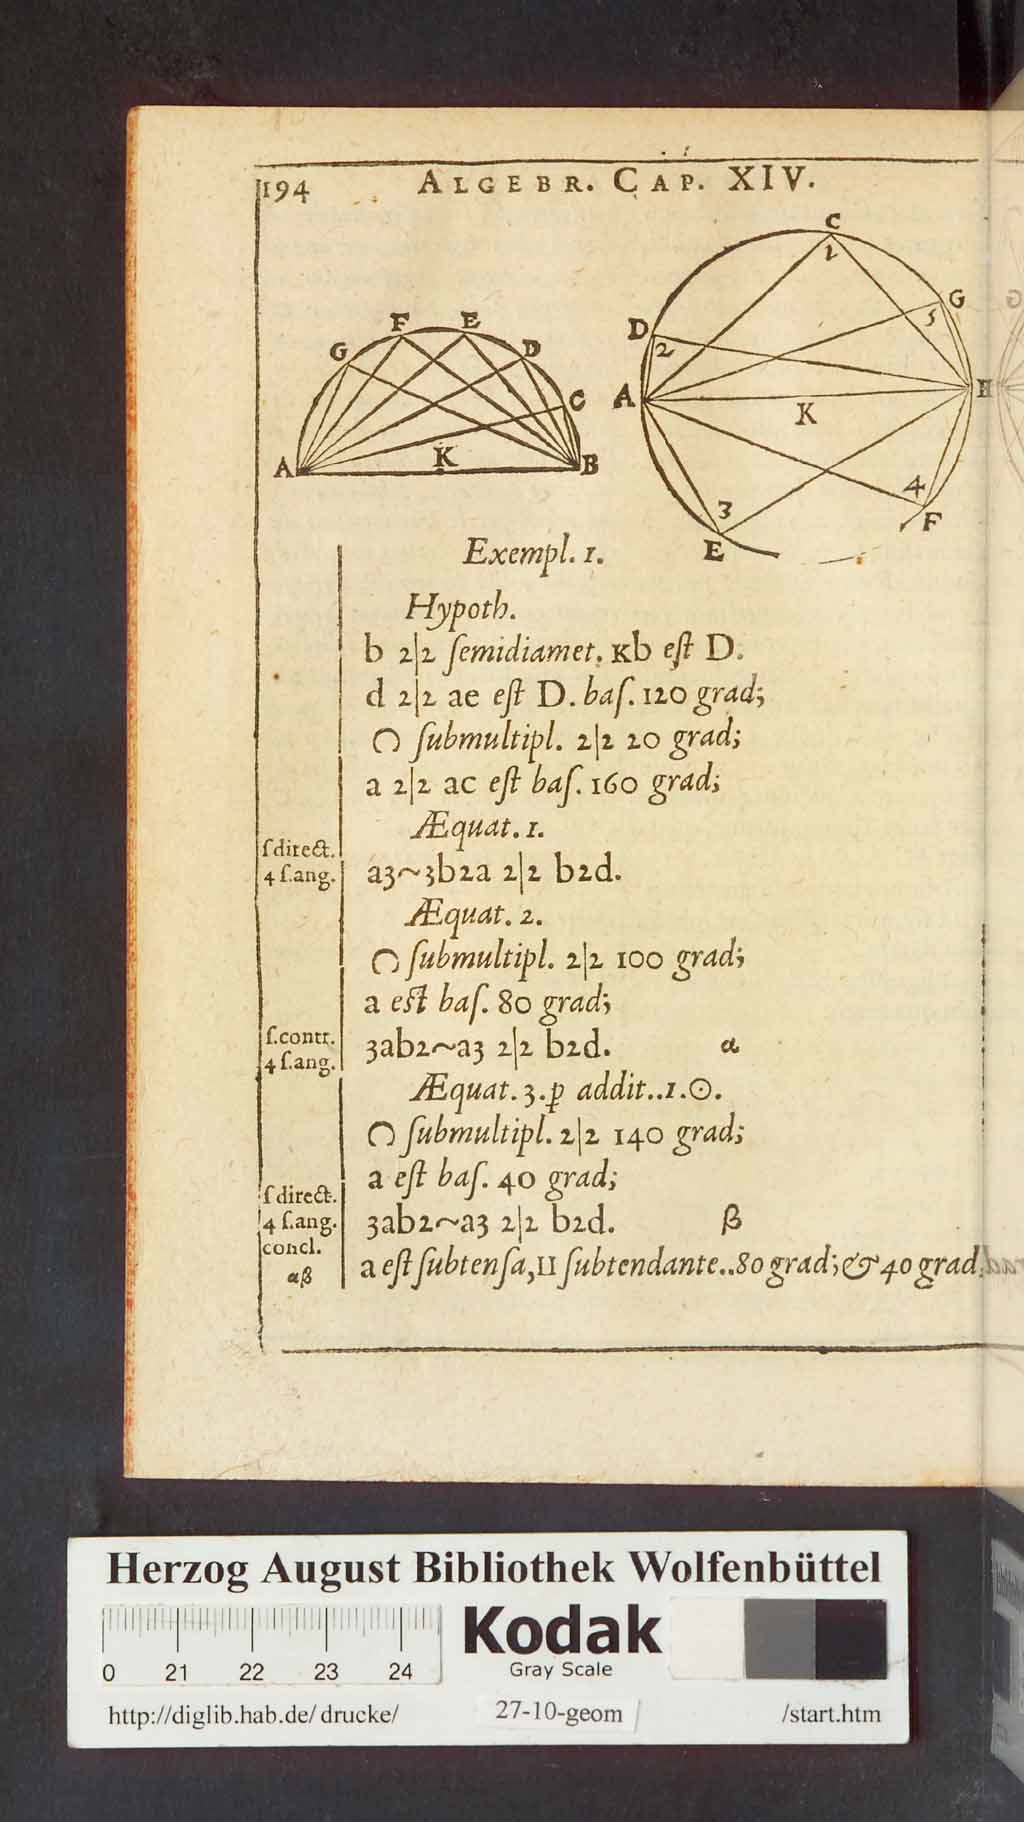 194 ALGEBR. CAP. XIV.
C
1
G
5
D
2
A
K
H
4
F
3
E
F E
G D
C
A K B
Exempl. 1.
Hypoth.
b 2|2 ſemidiamet. Kb eſt D.
d 2|2 ae eſt D. baſ. 120 grad;
∩ ſubmultipl. 2|2 20 grad;
a 2|2 ac eſt baſ. 160 grad;
Æquat. 1.
ſ direct.
4 ſ.ang. a3~3b2a 2|2 b2d.
Æquat. 2.
∩ ſubmultipl. 2|2 100 grad;
a eſt baſ. 80 grad;
ſ.contr.
4 ſ.ang. 3ab2~a3 2|2 b2d. α
Æquat. 3. ꝑ addit..1.⊙.
∩ ſubmultipl. 2|2 140 grad;
a eſt baſ. 40 grad;
ſ direct.
4 ſ.ang. 3ab2~a3 2|2 b2d. β
concl.
αβ a eſt ſubtenſa, II ſubtendante..80 grad; & 40 grad.
Herzog August Bibliothek Wolfenbüttel
Kodak
Gray Scale
0 21 22 23 24
http://diglib.hab.de/drucke/ 27-10-geom /start.htm